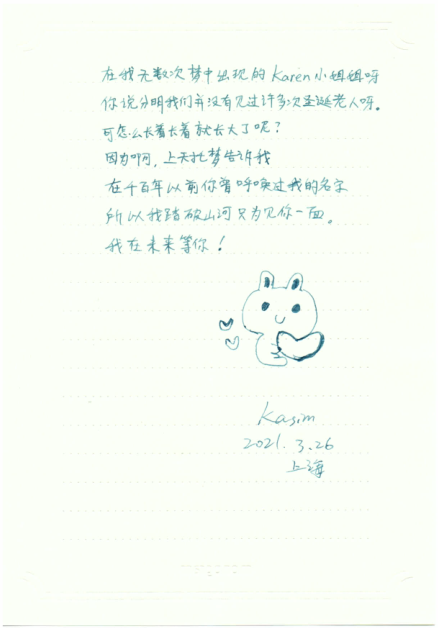 在我无数次梦中出现的Karen小姐姐呀
你说分明我们并没有见过许多次圣诞老人呀。
可怎么长着长着就长大了呢？
因为啊，上天托梦告诉我
在千百年以前你曾呼唤过我的名字
所以我踏破山河只为见你一面。
我在未来等你！
Kasim
2021.3.26
上海